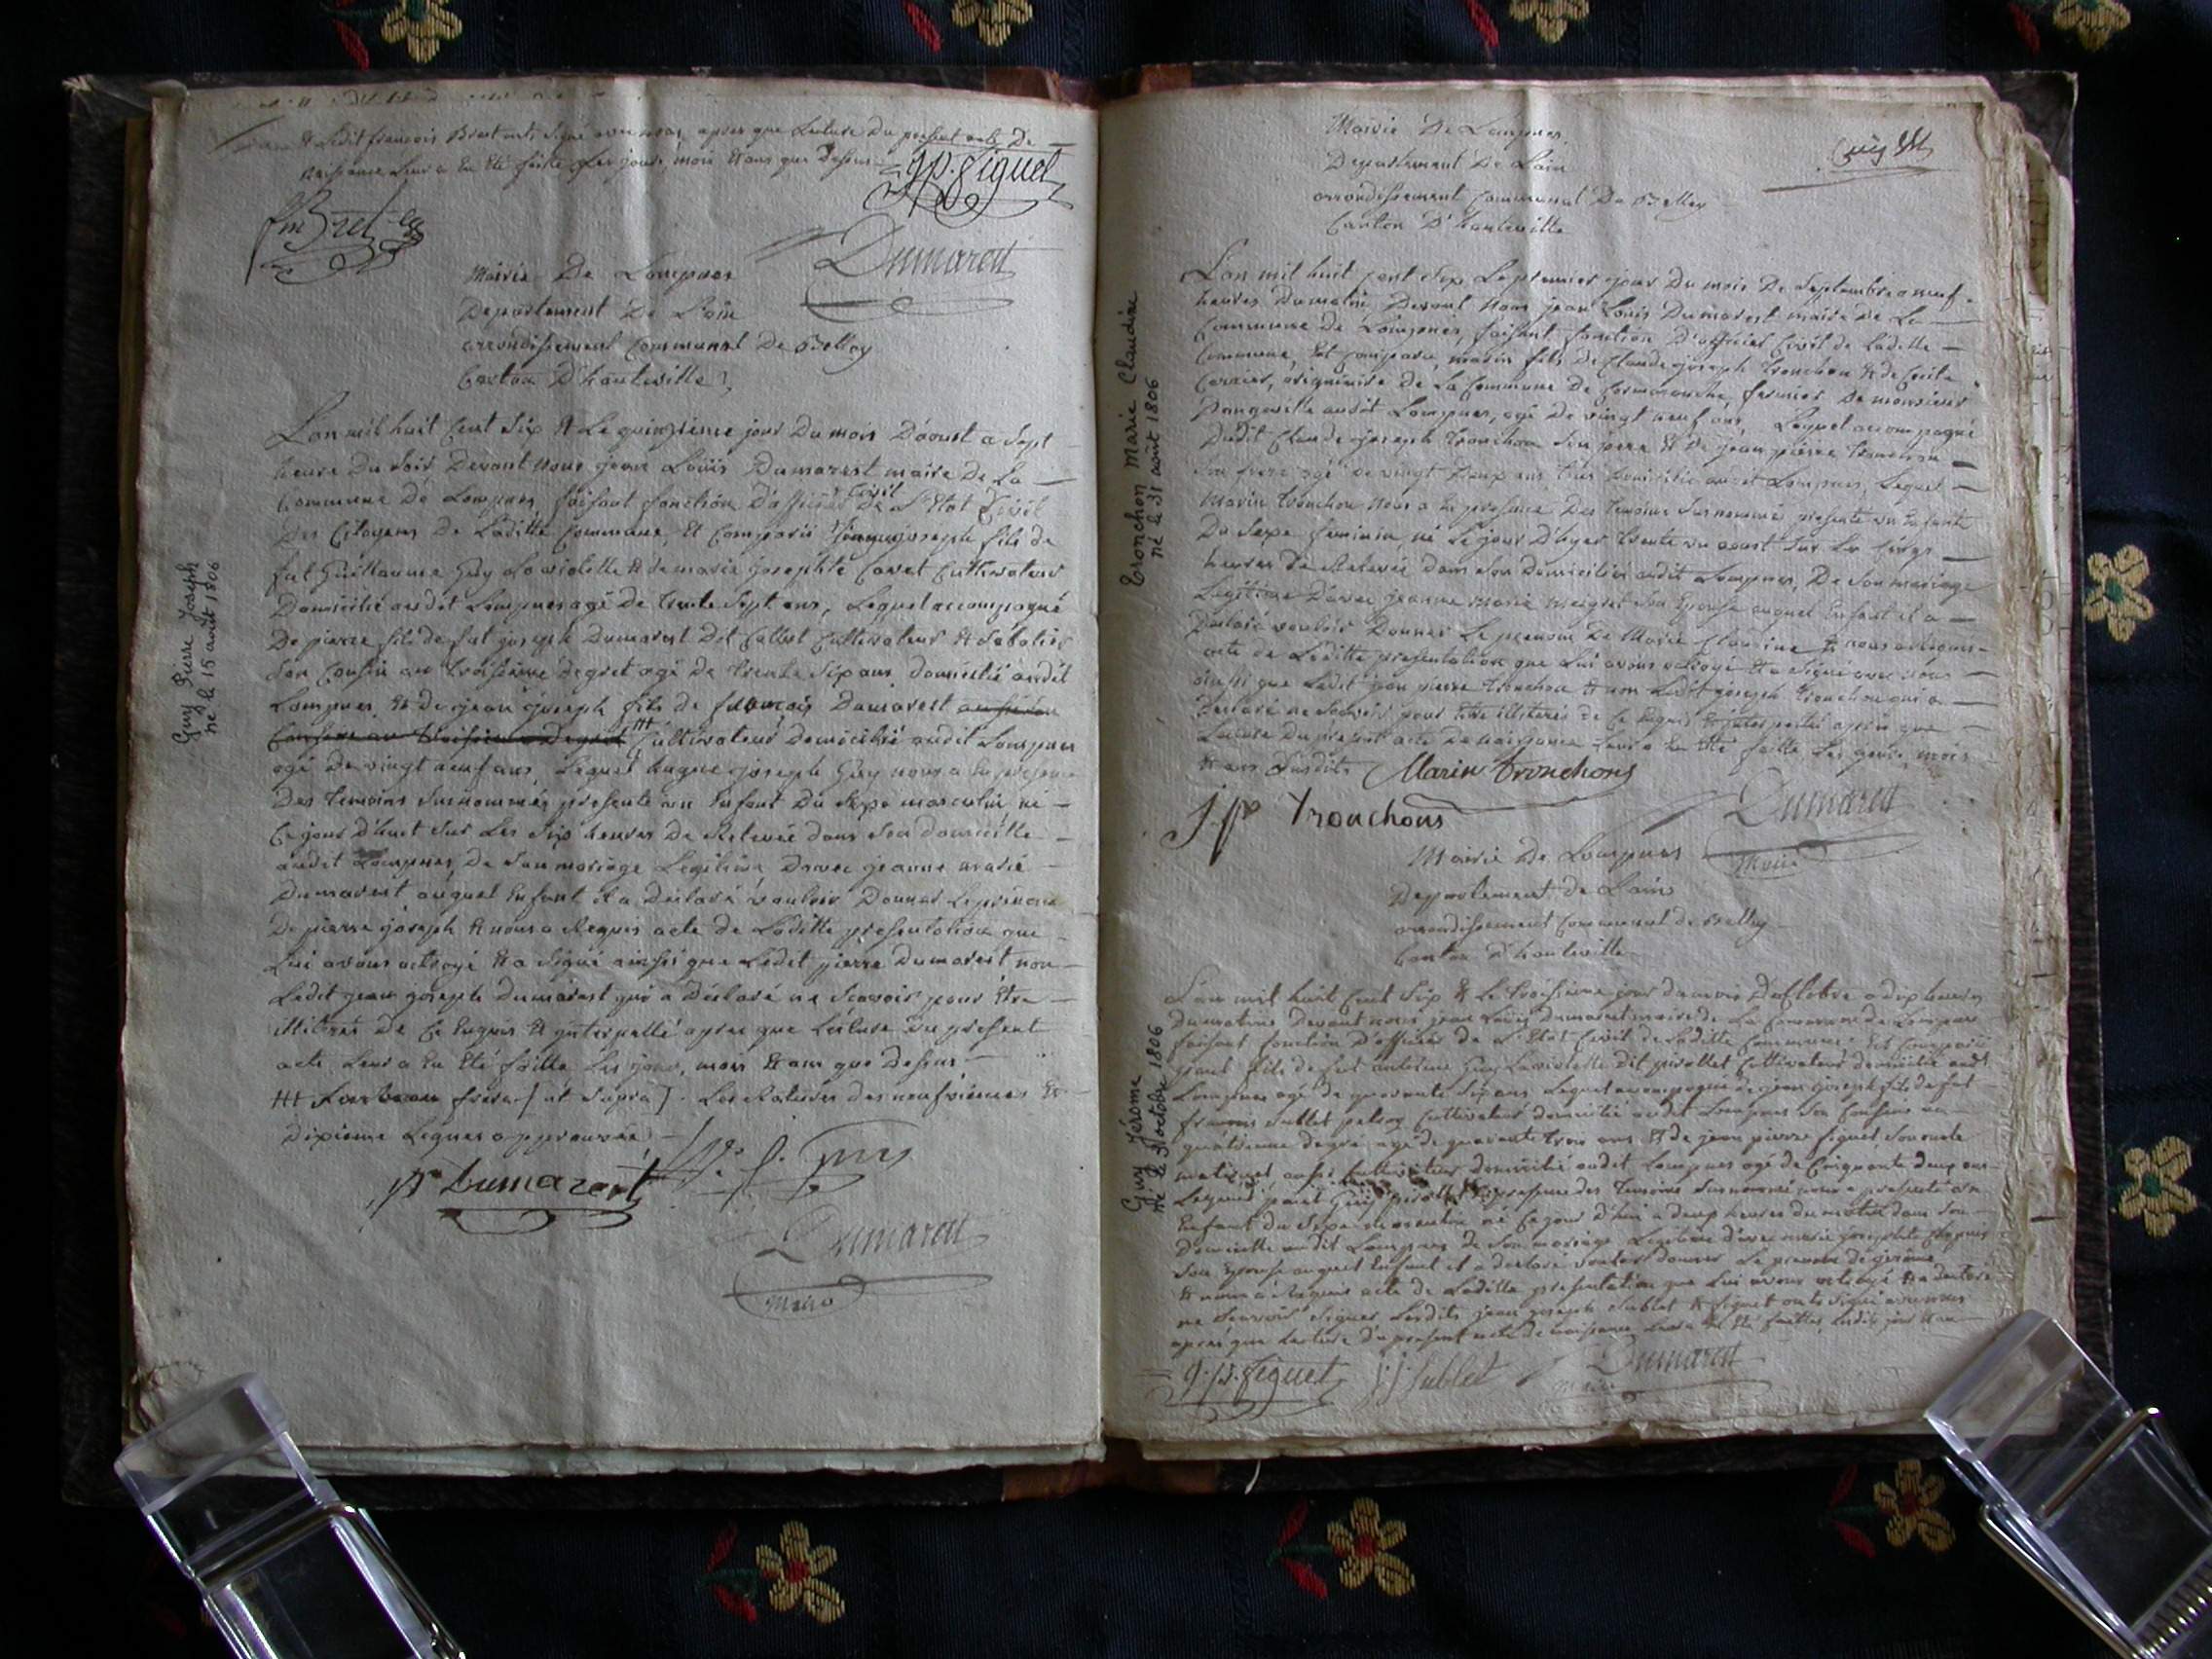 & ledit francois Bret ont signé avec nous, apres que Lecture du present acte de
naissance leur a eu Eté faitte Les jours, mois & ans que dessus
g p. figuet
fm Bret
Dumarest
Mairie De Lompnes
Departement De L'ain
arrondissement Communal De Belley
Canton D'hauteville
Guy Pierre Joseph
né le 15 août 1806
L'an mil huit Cent Six & Le quinzieme jour Du mois D'aoust a Sept
heure Du Soir Devant Nous jean Loüis Dumarest maire De La
Commune De Lompnes, faisant fonction D'officier Civil De L'Etat Civil
Des Citoyens De Laditte Commune, Et Comparu joseph fils de
fut Guillaume Guy La violette & de marie josephte Cultivateur
Domicilié audit Lompnes agé De trente Sept ans, Lequel accompagné
De pierre fils de fut joseph Dumarest Dit Cultivateur &
Son Cousin au troisieme degret agé de trente Six ans, domicilié audit
Lompnes, & De jean joseph fils de francois Dumarest
au troisieme Degret Cultivateur Domicilié audit Lompnes
agé De vingt neuf ans, Lequel hugue joseph Guy nous a En presence
Des temoins Surnommés presenté un Enfant Du Sexe masculin né
Ce jour D'huit Sur Les Six heures De Relevée dans Son domicille
audit Lompnes, De Son mariage Legitime D'avec jeanne marie
Dumarest, auquel Enfant il a Déclaré vouloir Donner Le prenom
De pierre joseph & nous a Requis acte de Laditte presentation que
Lui avons octroyé & a Signé ainsi que Ledit pierre Dumarest non
Ledit jean joseph Dumarest qui a Déclaré ne Scavoir pour Etre
illiteré De Ce Enquis & interpellé apres que Lecture du present
acte Leur a Eu Eté faitte Les jour, mois & an que Dessus
frere [ut Supra]. Les Ratures des neufviemes &
Dixieme Lignes approuvée
pre Dumarest
Guy
Dumarest
Maire
Mairie De Lompnes
Departement De L'ain
arrondissement Communal De Belley
Canton D'hauteville
Tronchon Marie Claudine
né le 31 août 1806
L'an mil huit Cent Six Le premier jour Du mois De Septembre a neuf
heures Du matin Devant Nous jean Louis Dumarest maire De La
Commune De Lompnes, faisant fonction D'officier Civil de Laditte
Commune, Est Comparu, marin fils de Claude joseph Tronchon & de Cecile
originaire de La Commune De Cormaranche, fermier De monsieur
Dangeville audit Lompnes, agé De vingt neuf ans, Lequel accompagné
Dudit Claude joseph Tronchon Son pere & De jean pierre Tronchon
Son frere agé De vingt Deux ans, tous Domiciliés audit Lompnes, Lequel
Marin Tronchon Nous a En presence Des temoins Surnommés, presenté un Enfant
Du Sexe feminin, né Le jour D'hyer trente un aoust Sur Les Cinq
heures De Relevée dans Son Domicilier audit Lompnes, De Son mariage
Legitime D'avec jeanne Marie Meigret Son Epouse auquel Enfant il a
Declaré vouloir Donner Le prenom De Marie Claudine & nous a Requis
acte de Laditte presentation que Lui avons octroyé & a Signé avec nous
ainsi que Ledit jean pierre Tronchon & non Ledit joseph Tronchon qui a
Declaré ne Scavoir pour Etre illiteré de Ce Requis & interpellé apres que
Lecture Du present acte De naissance Leur a Eu Eté faitte Les jour, mois
& ans Susdits Marin Tronchons
J. p Tronchons
Dumarest
Maire
Mairie De Lompnes
Departement De L'ain
arrondissement Communal de Belley
Canton D'hauteville
Guy Jérome
né le 3 octobre 1806
L'an mil huit Cent Six & Le troisieme jour du mois D'octobre a dix heures
Du matin Devant nous jean Louis Dumarest maire de La Commune de Lompnes
faisant fonction D'officier de L'Etat Civil de Laditte Commune Est Comparu
fils de fut antoine Guy Laviolette dit pirollet Cultivateur domicilié audit
Lompnes agé de quarante Six ans Lequel accompagné de jean joseph fils de fut
francois Sublet Cultivateur domicilié audit Lompnes Son Cousin au
quatrieme degré agé de quarante trois ans & de jean pierre figuet, Son oncle
maternel, aussi Cultivateur domicilié audit Lompnes agé de Cinquante deux ans
Lequel Guy pirollet presence des temoins Surnommés nous a presenté un
Enfant du Sexe masculin né Ce jour D'hui a deux heures du matin dans Son
Domicille audit Lompnes de Son mariage Legitime d'avec marie josephte
Son Epouse auquel Enfant il a declaré vouloir donner Le prenom de gerome
& nous a Requis acte de Laditte presentation que Lui avons octroyé & a declaré
ne Scavoir Signer Lesdits jean joseph Sublet & figuet ont Signé avec nous
apres que Lecture du present acte de naissance Leur a Eu Eté faitte, Lesdits jour & an
g. p. figuet j. j. Sublet Dumarest
maire